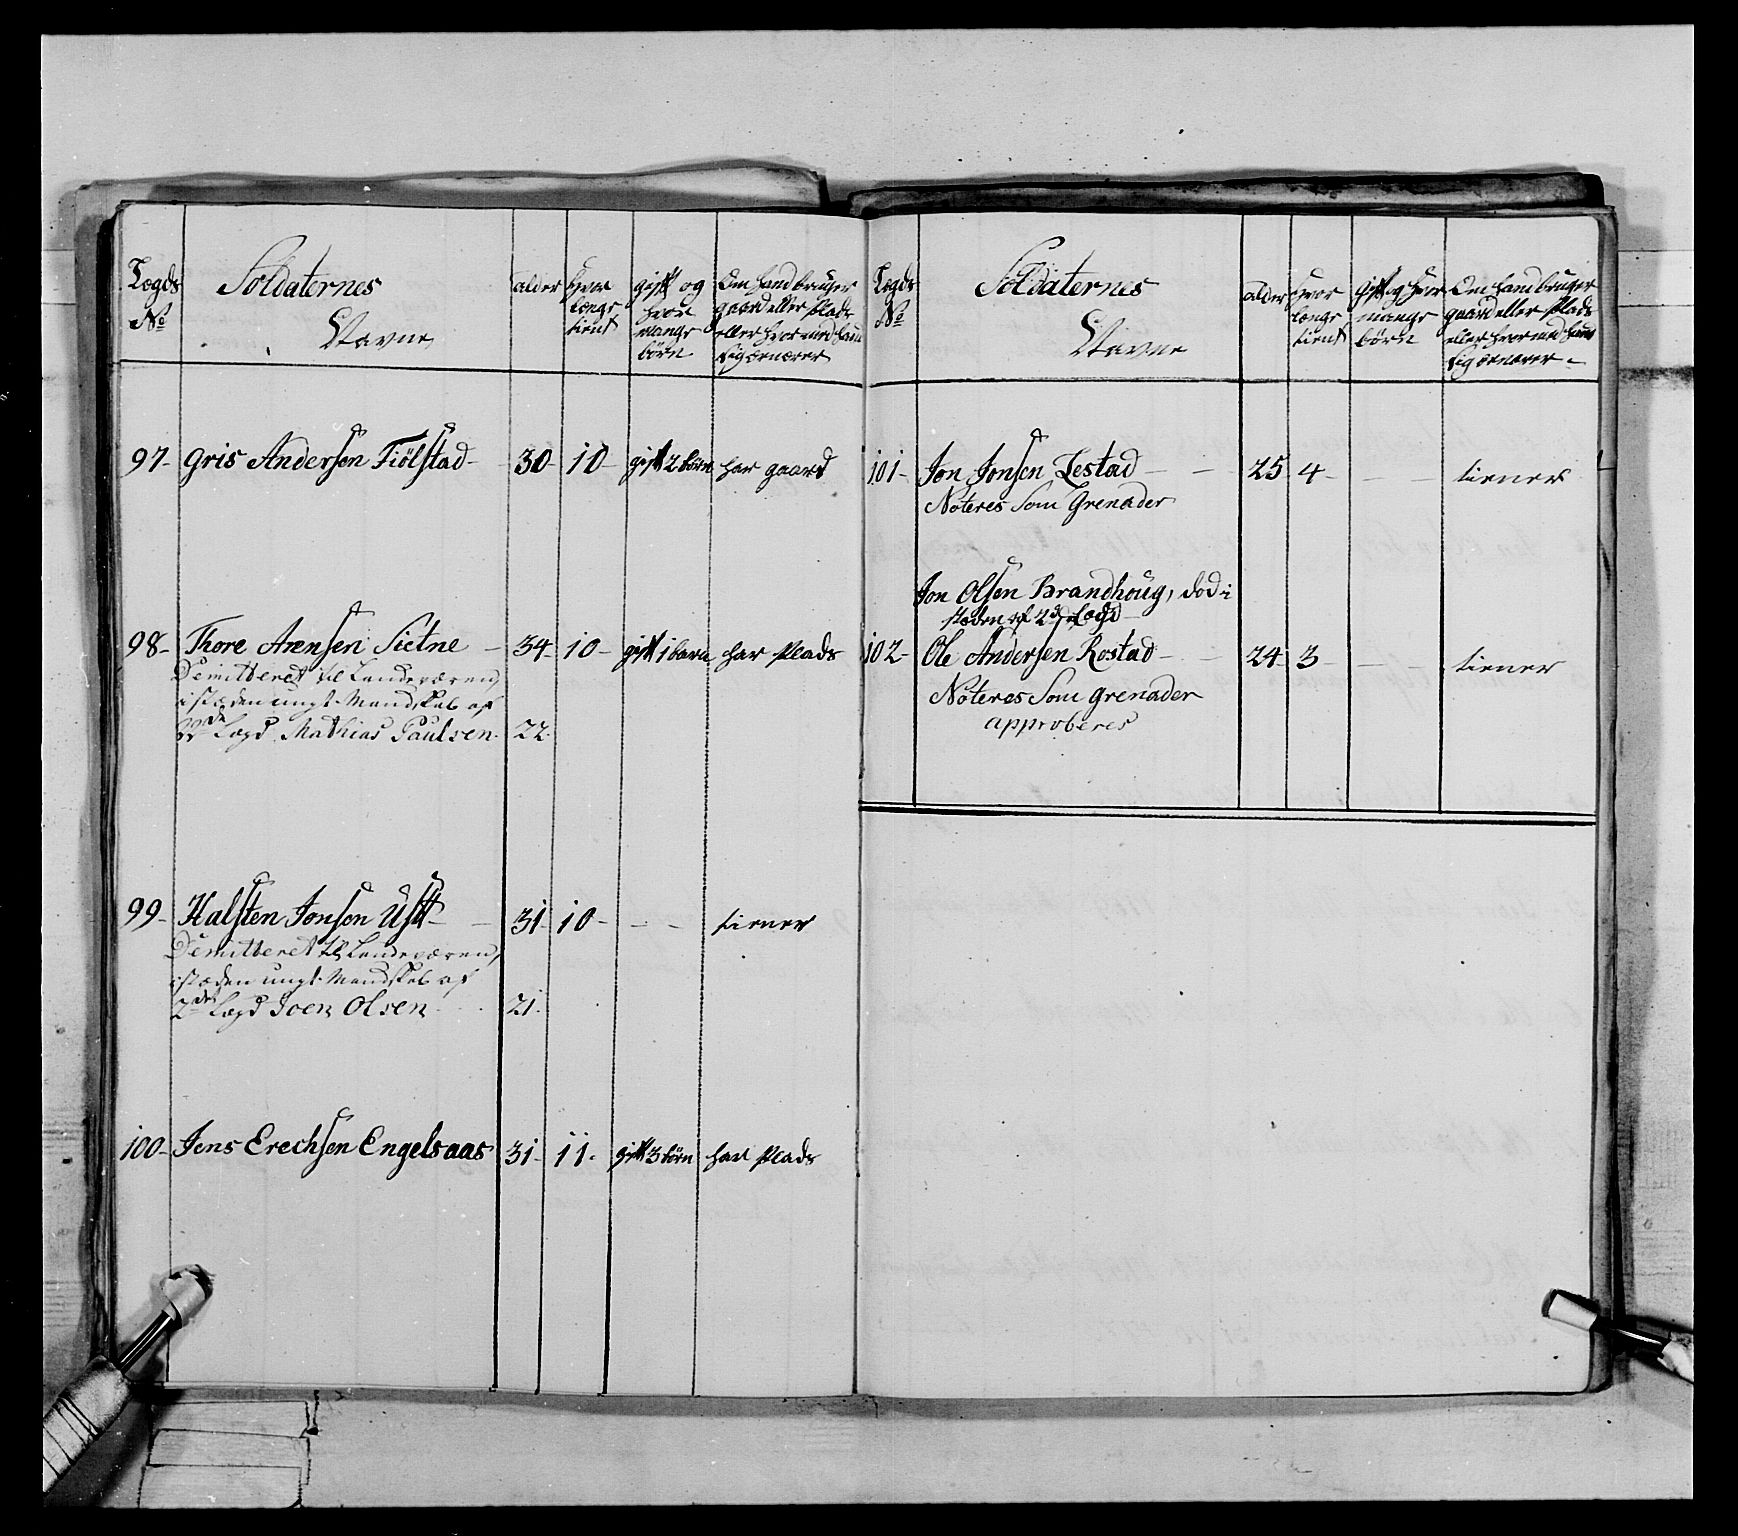 Legds No
Soldaternes Navne
alder
hvor længe tient
gift og hvor mange börn
Om hand bruger gaard eller Plads eller hvor med hand sig ernærer
97- Gris Andersen Fiölstad - 30- 10- gift 2 börn har gaard
98- Thore Arensen Sietne - 34- 10- gift 1 barn har Plads
Demitteret til Landeværen,
i stæden ungt Mandskab af
Lægd Mathias Paulsen. 22.
99- Halsten Jonsen Ust - 31- 10- - - tiener
Demitteret til Landeværen,
i stæden ungt Mandskab af
2de Lægd Joen Olsen 21.
100- Jens Erechsen Engelsaas 31- 11- gift 3 börn har Plads
Legds No
Soldaternes Navne
alder
hvor længe tient
gift og hvor mange börn
Om hand bruger gaard eller Plads eller hvor med hand sig ernærer -
101- Jon Jonsen Lestad - - 25 4- - - tiener
Noteres Som Grenader
Jon Olsen Brandhoug, död i
stæden af 2de Lægd
102- Ole Andersen Rostad - - 24 3- - - tiener
Noteres Som grenader
approberes